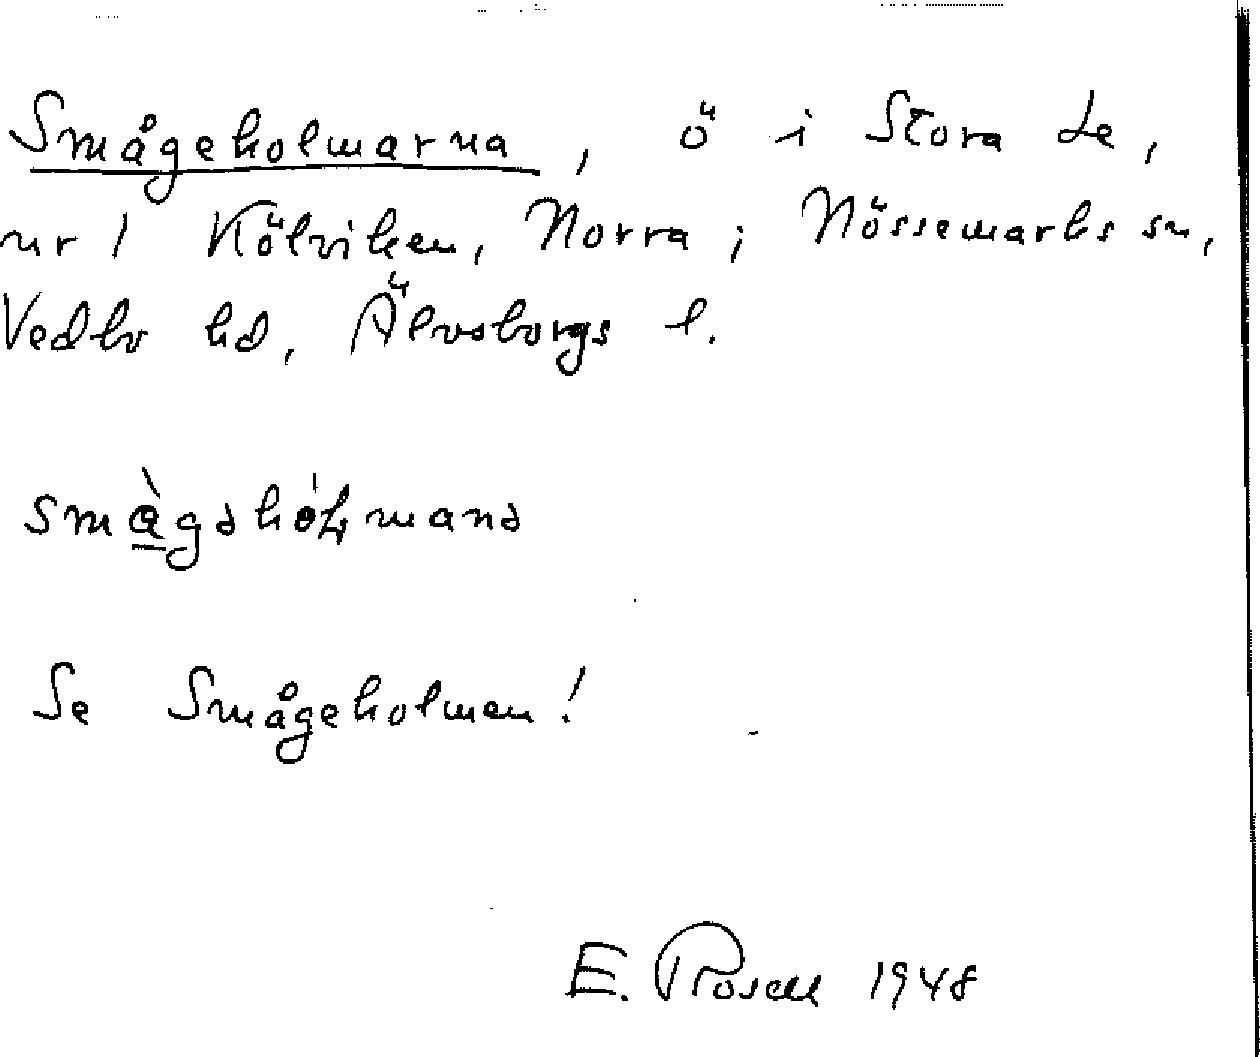 Smågeholmarna, ö i Stora Le,
nr 1 Kölviken, Norra i Nössemarks sn,
Vedbo hd, Älvsborgs l.
Se Smågeholmen!
E. Rosell 1948